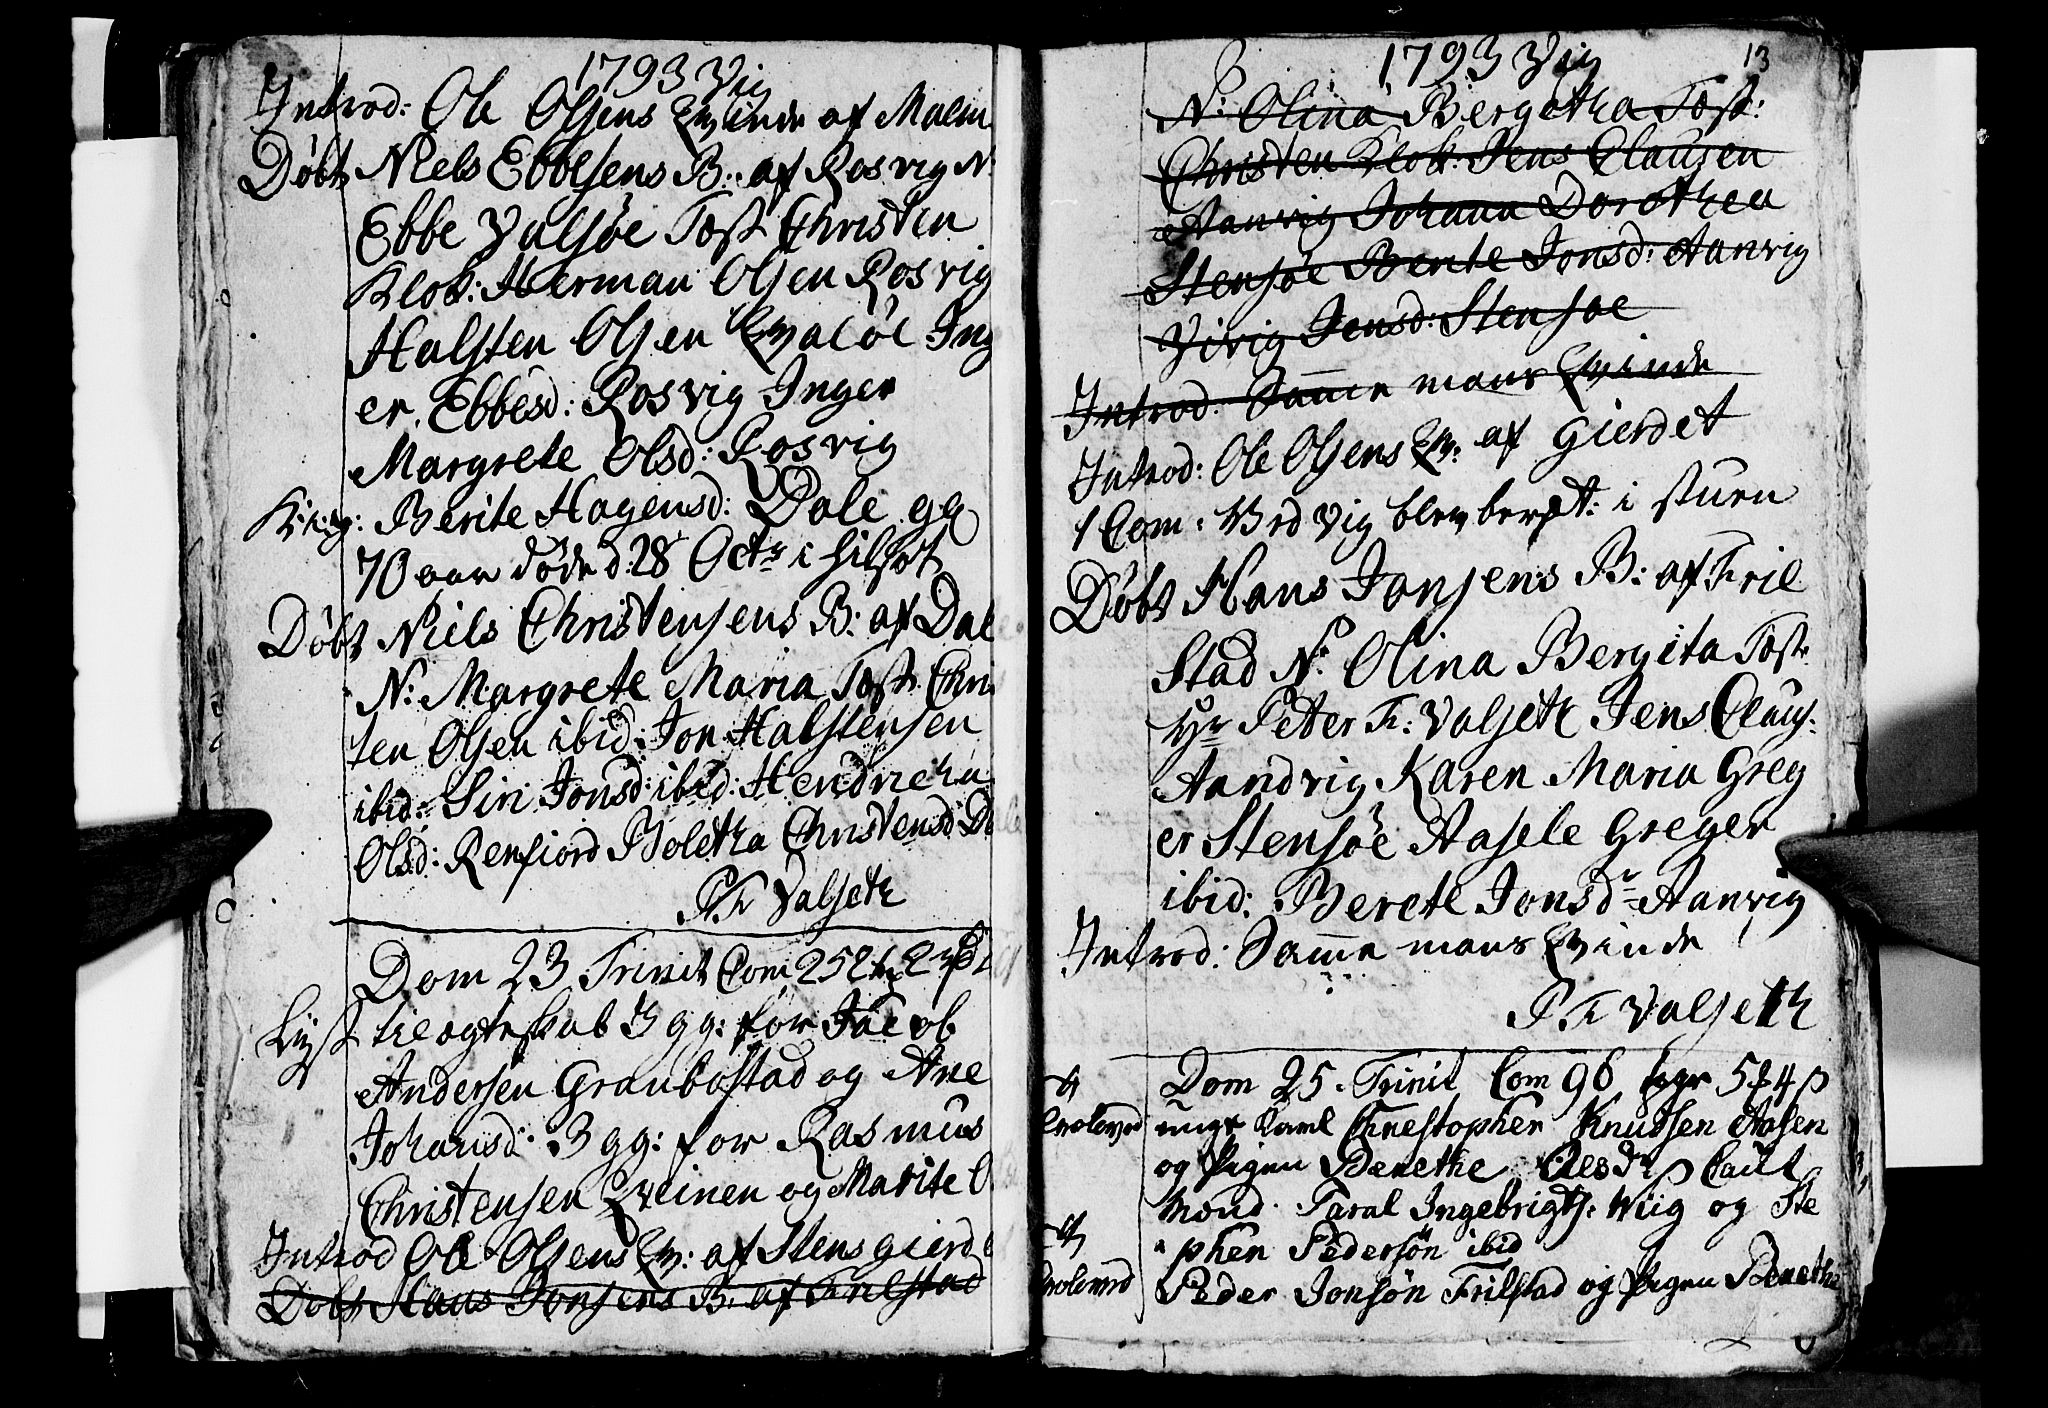 1793 Vig
Introd: Ole Olsens Qvinde af Malm
Døbt Niels Ebbesens B: af Rosvig N:
Ebbe Valsøe Test Christen
Klok: Herman Olsen Rosvig
Halsten Olsen Qvaløe Ing
er Ebbesd: Rosvig Inger
Margrete Olsd: Rosvig
Berite Hagensd: Dale gl
70 aar døde d: 28 Octr i
Døbt Niels Christensens B: af Dal
N: Margrete Maria Test: Chris
ten Olsen ibid: Jon Halstensen
ibid: Siri Jonsd: ibid: Hendricha
Olsd: Renfiord Boletha Christensd: D
P Fr Valseth
Dom 23 Trinit Com 25
Lyst til ægteskab 3 gg: for Jacob
Andersen Graubostad og Ane
Johansd: 3 gg: for Rasmus
Christensen Qveinen og Marite O
Introd Ole Olsens Qv: af Stensgierd
Døbt Hans Jonsens B: af Frilstad
1793 Vig
13
N: Olina Bergetha Test:
Christen Klok: Jens Clausen
Aanvig Johana Dorothea
Stensøe Berite Jonsd: Aanvig
Jensd: Stensøe
Introd: Samme mans Qvinde
Introd: Ole Olsens Qv: af Gierdet
1 Com: Ved Vig blev beret: i stuen
Døbt Hans Jonsens B: af Fril
Stad N: Olina Bergita Test:
Hr Peter Fr: Valseth Jens Claus:
Aandvig Karen Maria Greg
er Stensøe Aasele Greger
ibid: Berete Jonsdr Aanvig
Introd: Samme mans Qvinde
P Fr Valseth
Dom 25. Trinit Com 96
Troloved ungt Karl Christopher Knudsen Aasen
og Pigen Berethe Olesdr Caut
Mond. Taral Ingebrigts: Wiig og Ste
phen Pedersøn ibid
Troloved Peder Jonsøn Frilstad og Pigen Berethe